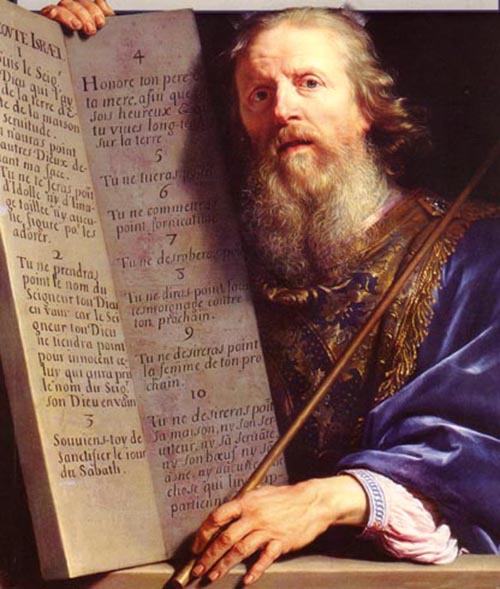 COVTE ISRAËL
1
suis le Seigr
Dieu qui t'ay
de la terre d'E
te de la maison
servitude.
n'auras point
autres Dieux de-
ant ma face.
Tu ne te feras poit
d'Idolle ny d'ima-
ge taillée ny aucu-
ne figure po' les
adorer.
2
Tu ne prendras
point le nom du
Seigneur ton Dieu
en vain car le Sei
gneur ton Dieu
ne tiendra point
pour innocent ce-
luy qui aura pris
le nom du Seigr
son Dieu en vain
3
Souviens-toy de
sanctifier le iour
du Sabath.
4
Honore ton pere et
ta mere, afin que
sois heureux
tu vives long-
sur la terre
5
Tu ne tueras point
6
Tu ne commettras
point fornication
7
Tu ne desroberas point
8
Tu ne diras point faux
tesmoignage contre
ton prochain.
9
Tu ne desireras point
la femme de ton pro
chain.
10
Tu ne desireras poit
sa maison, ny son ser-
viteur, ny sa servate,
ny son bœuf ny sō
asne, ny aucune
chose qui luy ap-
partienne